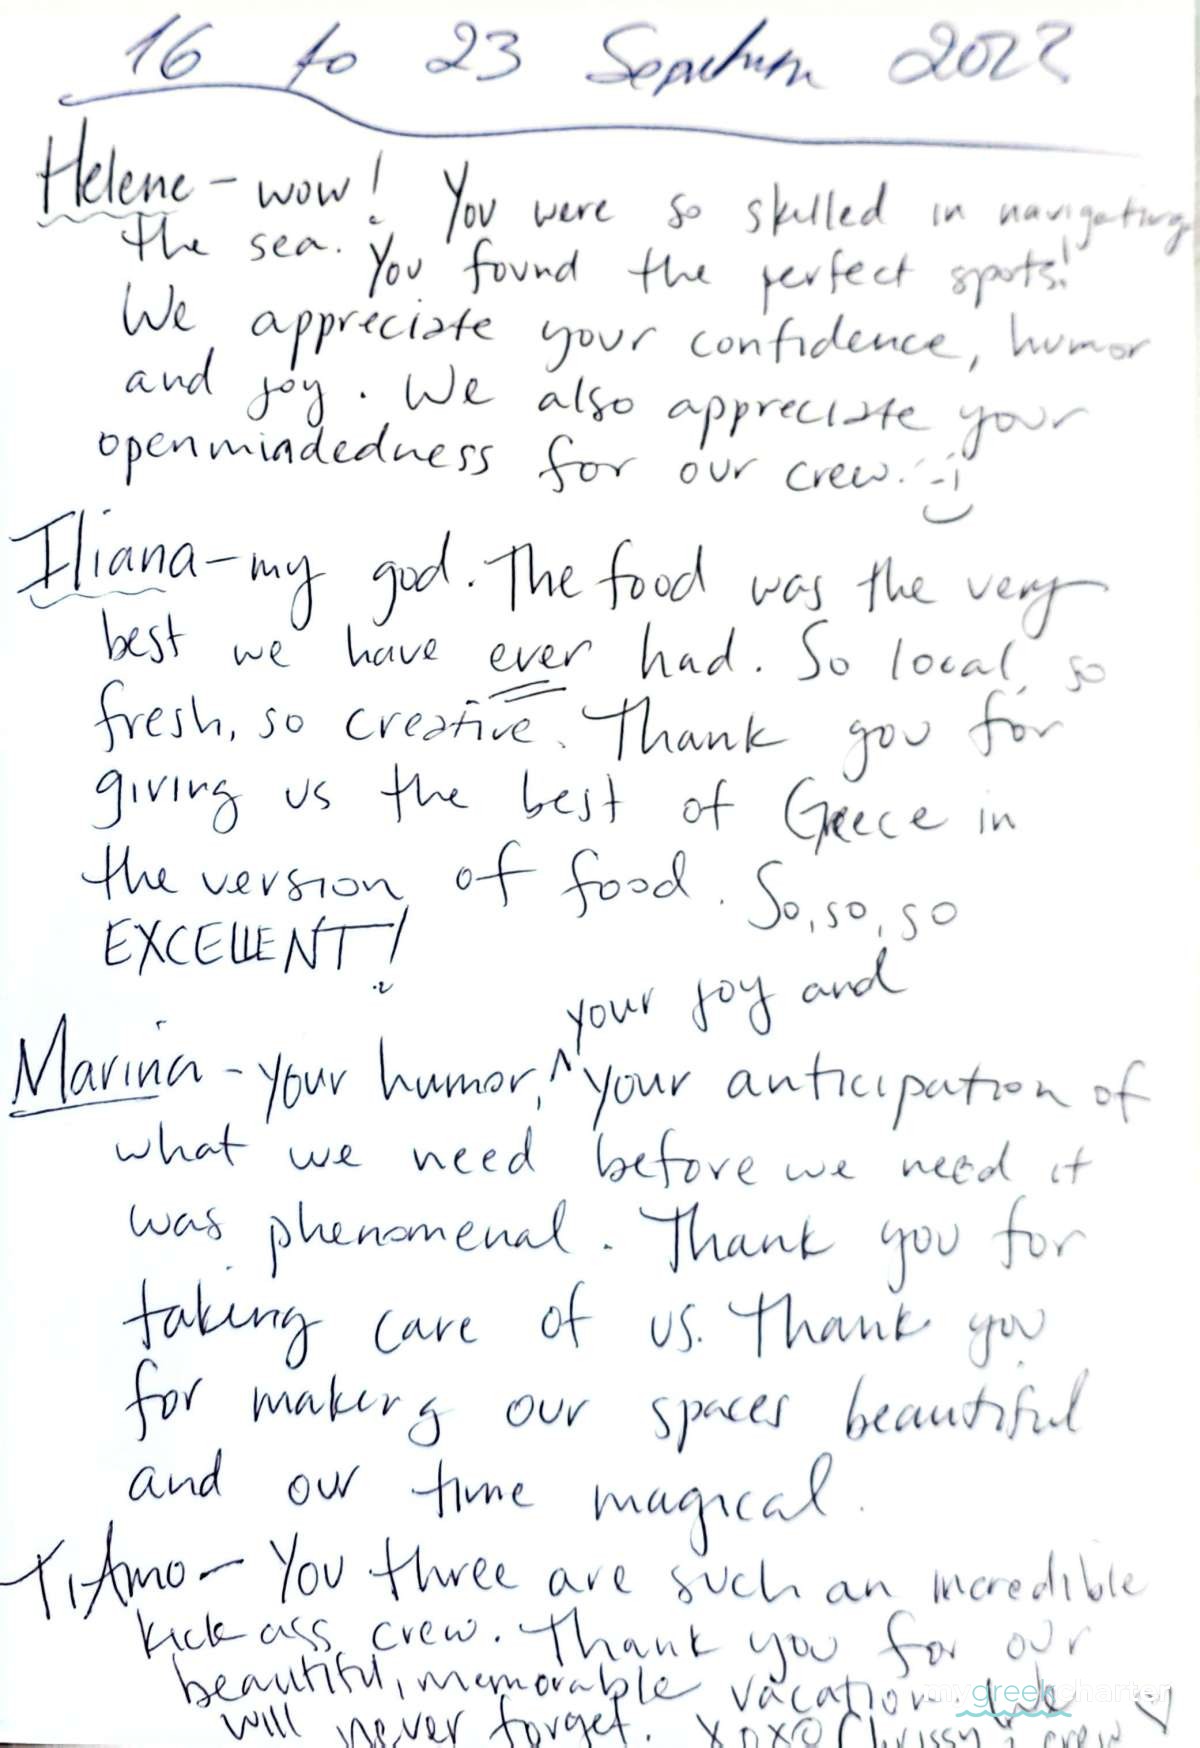 16 to 23 September 2022
Helene - wow! You were so skilled in navigating
the sea. You found the perfect spots!
We appreciate your confidence, humor
and joy. We also appreciate your
openmindedness for our crew. :-)
Iliana - my god. The food was the very
best we have ever had. So local, so
fresh, so creative. Thank you for
giving us the best of Greece in
the version of food. So, so, so
EXCELLENT!
your joy and
Marina - your humor, ^ your anticipation of
what we need before we need it
was phenomenal. Thank you for
taking care of us. Thank you
for making our spaces beautiful
and our time magical.
Ti Amo - You three are such an incredible
kick ass crew. Thank you for our
beautiful, memorable vacation. We
will never forget. XOXO Chrissy & crew
mygreekcharter